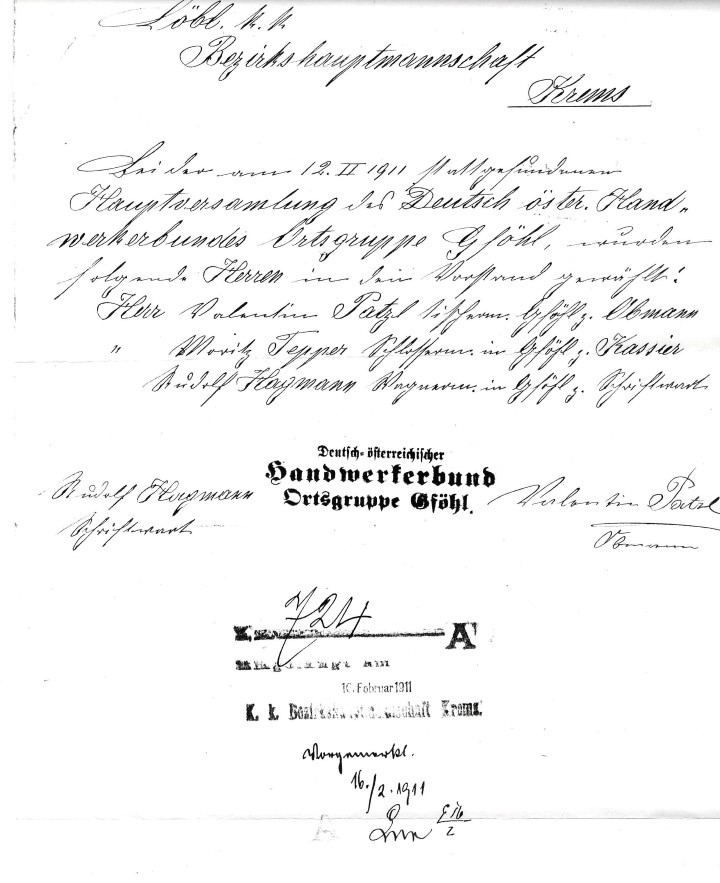 Löbl. k. k.
Bezirkshauptmannschaft
Krems
Bei der am 12. II 1911 stattgefundenen
Hauptversamlung des Deutsch öster. Hand„
werkerbundes Ortsgruppe Gföhl, wurden
folgende Herren in den Vorstand gewählt:
Herr Valentin Patzl Tischerm. Gföhl z. Obmann
„ Moritz Tepper Schlosserm. in Gföhl z. Kassier
Rudolf Hagmann Wagnerm. in Gföhl z. Schriftwart
Deutsch-österreichischer
Handwerkerbund
Ortsgruppe Gföhl.
Rudolf Hagmann
Schriftwart
Valentin Patzl
Obmann
724
A
16. Februar 1911
K. k. Bezirkshauptmannschaft Krems.
Vorgemerkt.
16./2. 1911